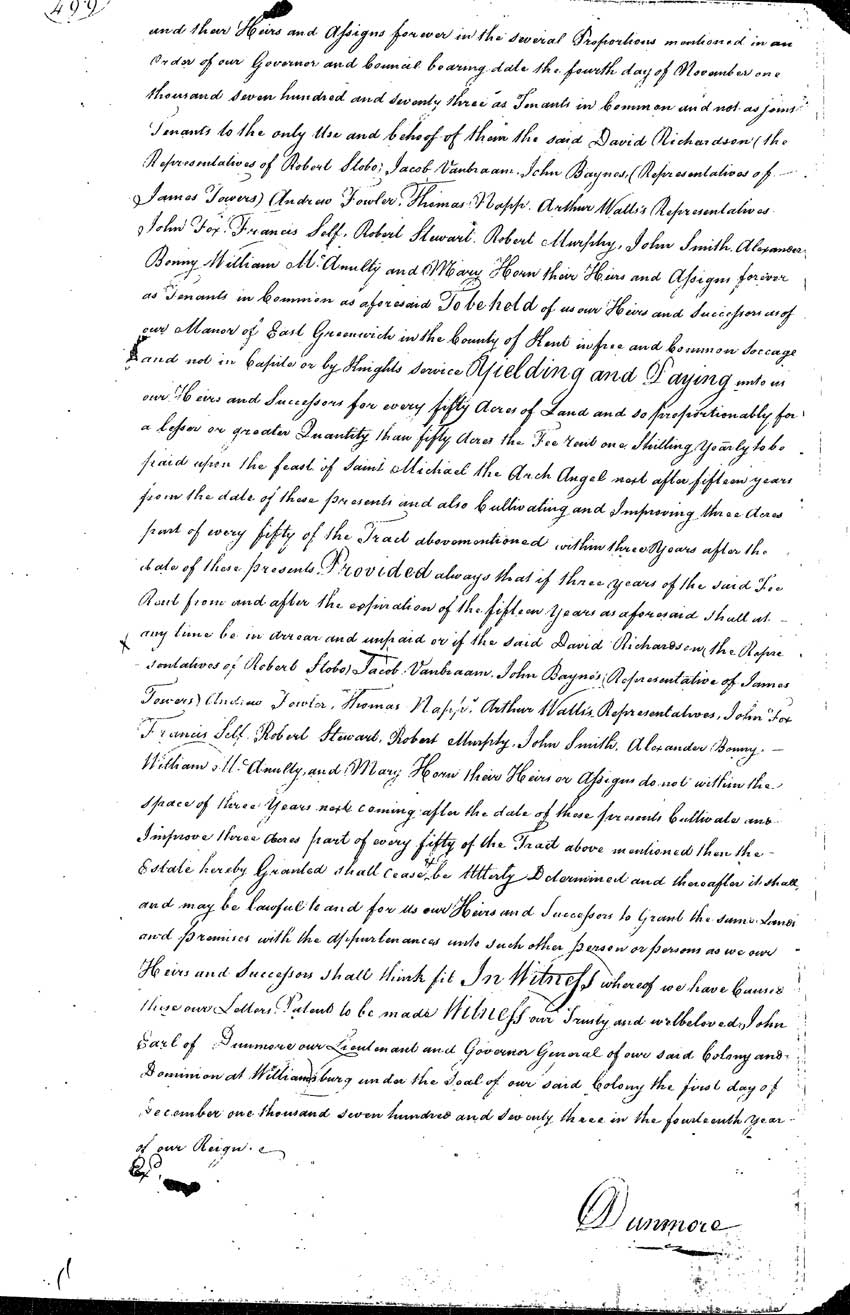 499
and their Heirs and Assigns forever in the several Proportions mentioned in an
Order of our Governor and Council bearing date the fourth day of November one
thousand seven hundred and seventy three as Tenants in Common and not as joint
Tenants to the only Use and behoof of them the said David Richardson (the
Representatives of Robert Stobo) Jacob Vanbraam, John Baynes, (Representatives of
James Towers) Andrew Fowler, Thomas Napp, Arthur Watts Representatives
John Fox, Francis Self, Robert Stewart, Robert Murphy, John Smith, Alexander
Bonny William McAnulty and Mary Horn their Heirs and Assigns forever
as Tenants in Common as aforesaid To be held of us our Heirs and Successors as of
our Manor of East Greenwich in the County of Kent in free and Common Soccage
and not in Capite or by Knights service Yielding and Paying unto us
our Heirs and Successors for every fifty Acres of Land and so proportionably for
a lesser or greater Quantity than fifty Acres the Fee rent one Shilling Yearly to be
paid upon the feast of Saint Michael the Arch Angel next after fifteen years
from the date of these presents and also Cultivating and Improving three Acres
part of every fifty of the Tract abovementioned within three Years after the
date of these presents. Provided always that if three years of the said Fee
Rent from and after the expiration of the fifteen Years as aforesaid shall at
any time be in arrear and unpaid or if the said David Richardson (the Repre
sentatives of Robert Stobo) Jacob Vanbraam, John Baynes (Representative of James
Towers) Andrew Fowler, Thomas Napp, Arthur Watts, Representatives, John Fox
Francis Self, Robert Stewart, Robert Murphy, John Smith, Alexander Bonny
William McAnulty, and Mary Horn their Heirs or Assigns do not within the
space of three Years next coming after the date of these presents Cultivate and
Improve three Acres part of every fifty of the Tract above mentioned then the
Estate hereby Granted shall cease & be Utterly Determined and thereafter it shall
and may be lawful to and for us our Heirs and Successors to Grant the same Lands
and premises with the appurtenances unto such other person or persons as we our
Heirs and Successors shall think fit In Witness whereof we have Caused
these our Letters Patent to be made Witness our Trusty and welbeloved, John
Earl of Dunmore our Lieutenant and Governor General of our said Colony and
Dominion at Williamsburg under the Seal of our said Colony the first day of
December one thousand seven hundred and seventy three in the fourteenth Year
of our Reign.
Exd.
Dunmore